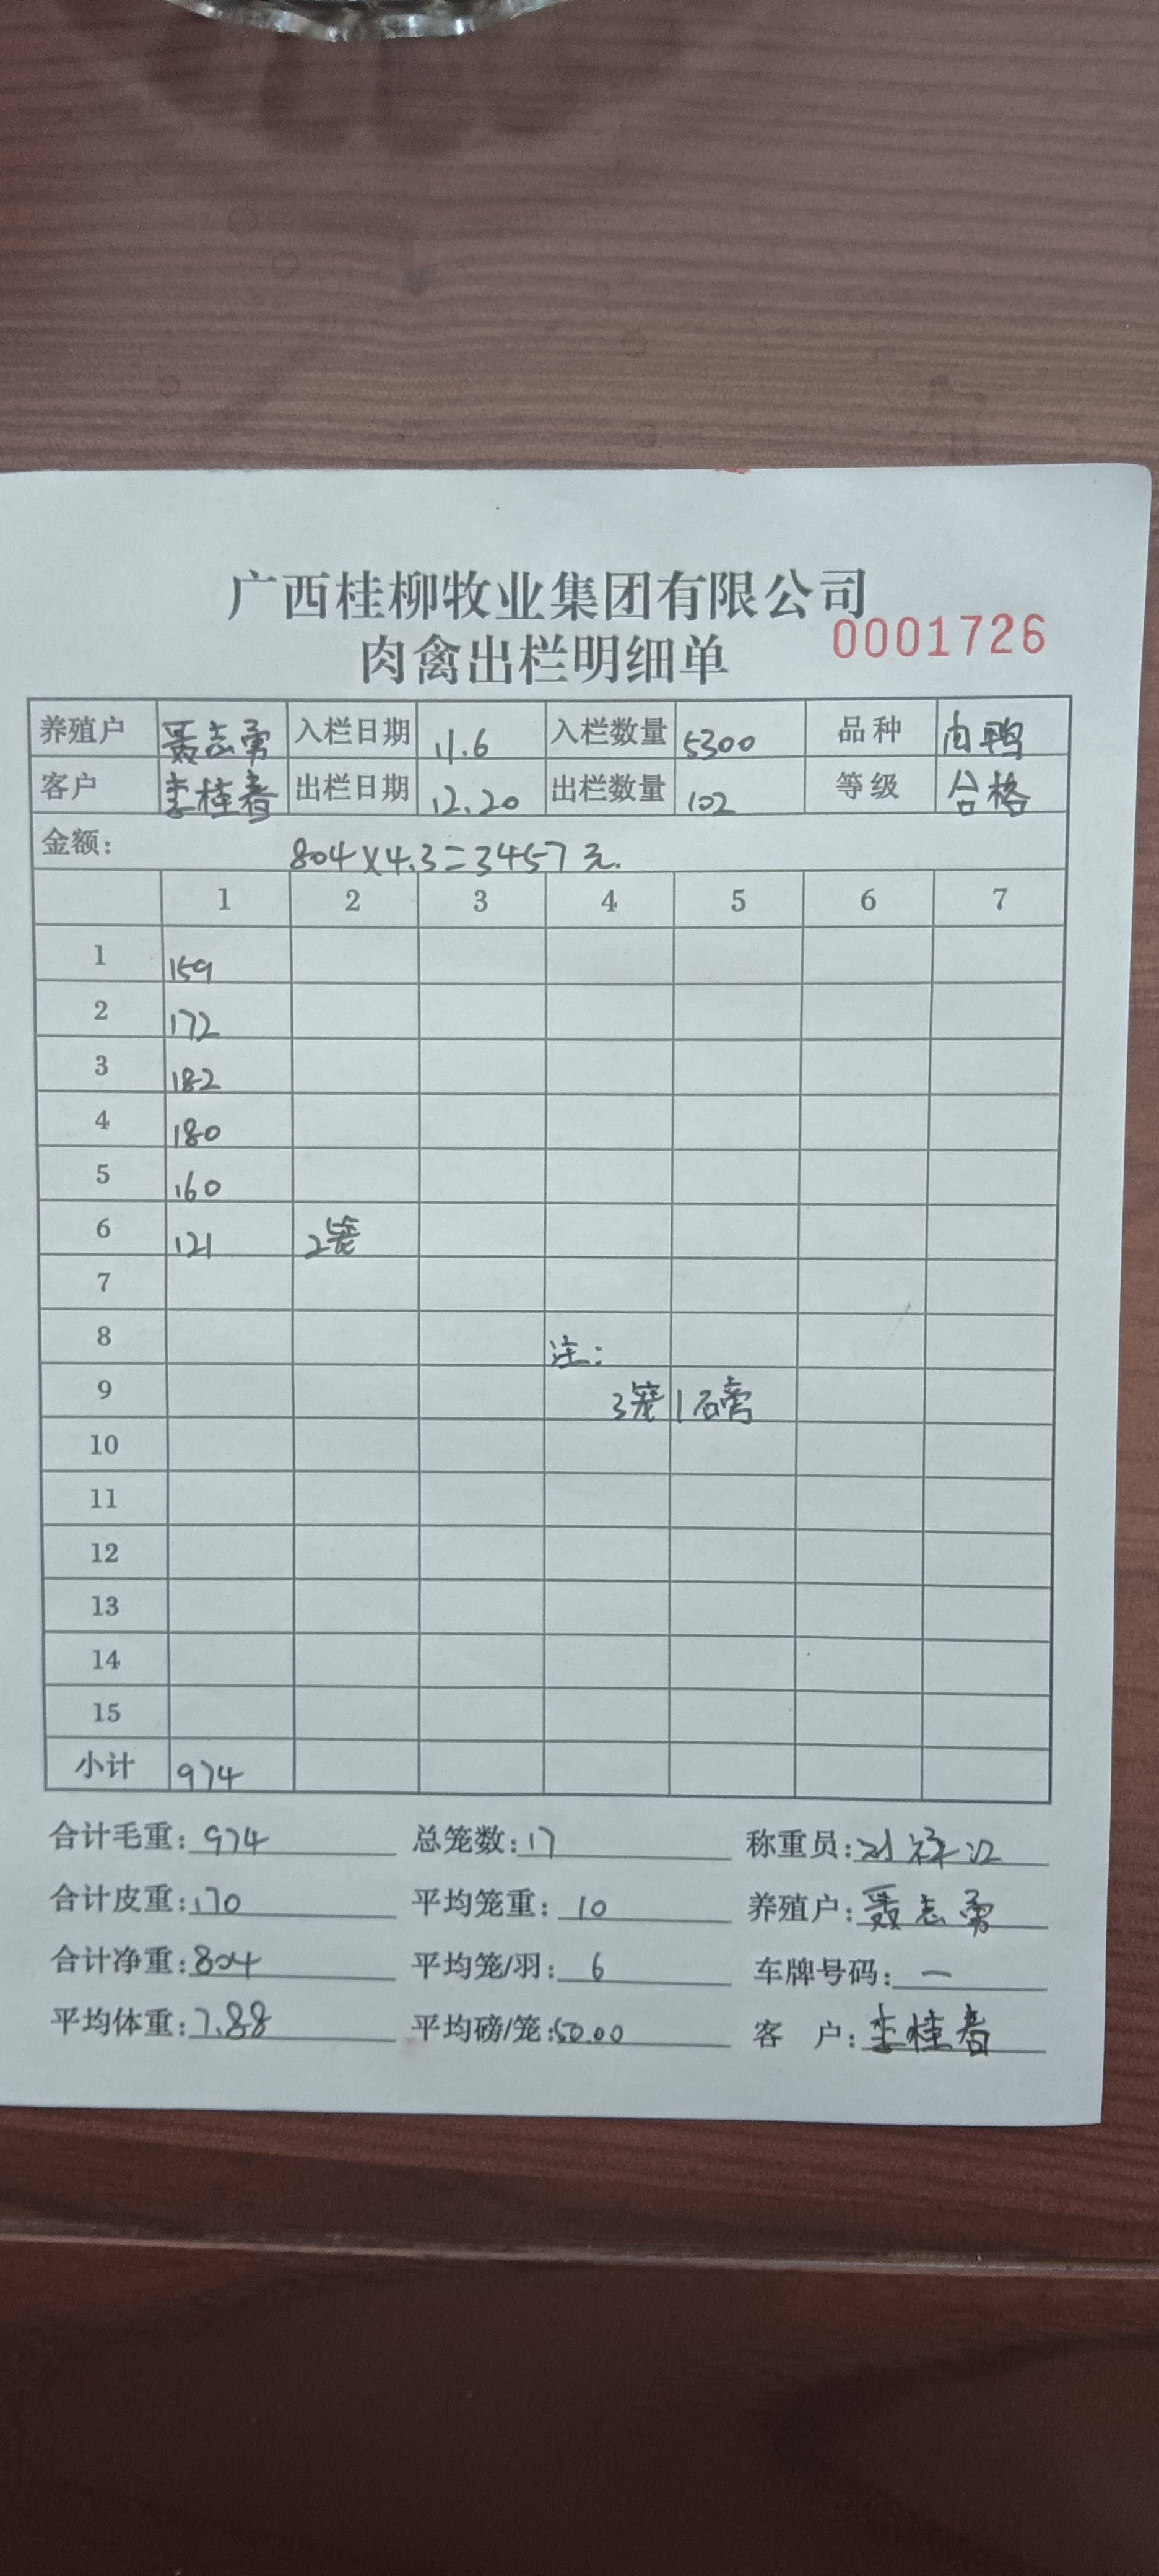 广西桂柳牧业集团有限公司
肉禽出栏明细单 0001726
养殖户 聂志勇 入栏日期 11.6 入栏数量 5300 品种 肉鸭
客户 李桂春 出栏日期 12.20 出栏数量 102 等级 合格
金额: 804×4.3=3457元.
1 2 3 4 5 6 7
1 159
2 172
3 182
4 180
5 160
6 121 2笼
7
8 注:
9 3笼1磅
10
11
12
13
14
15
小计 974
合计毛重: 974 总笼数: 17 称重员: 刘
合计皮重: 170 平均笼重: 10 养殖户: 聂志勇
合计净重: 804 平均笼/羽: 6 车牌号码: 一
平均体重: 7.88 平均磅/笼: 50.00 客 户: 李桂春